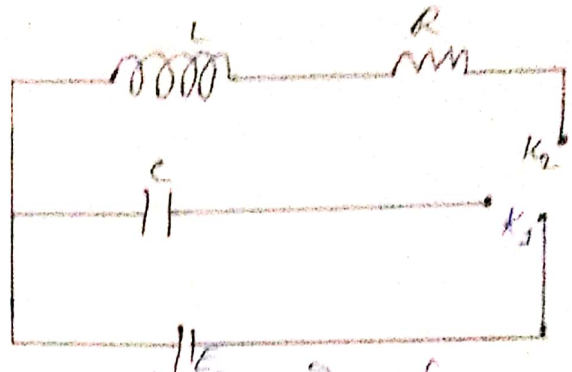 L R
K2
C
K1
E